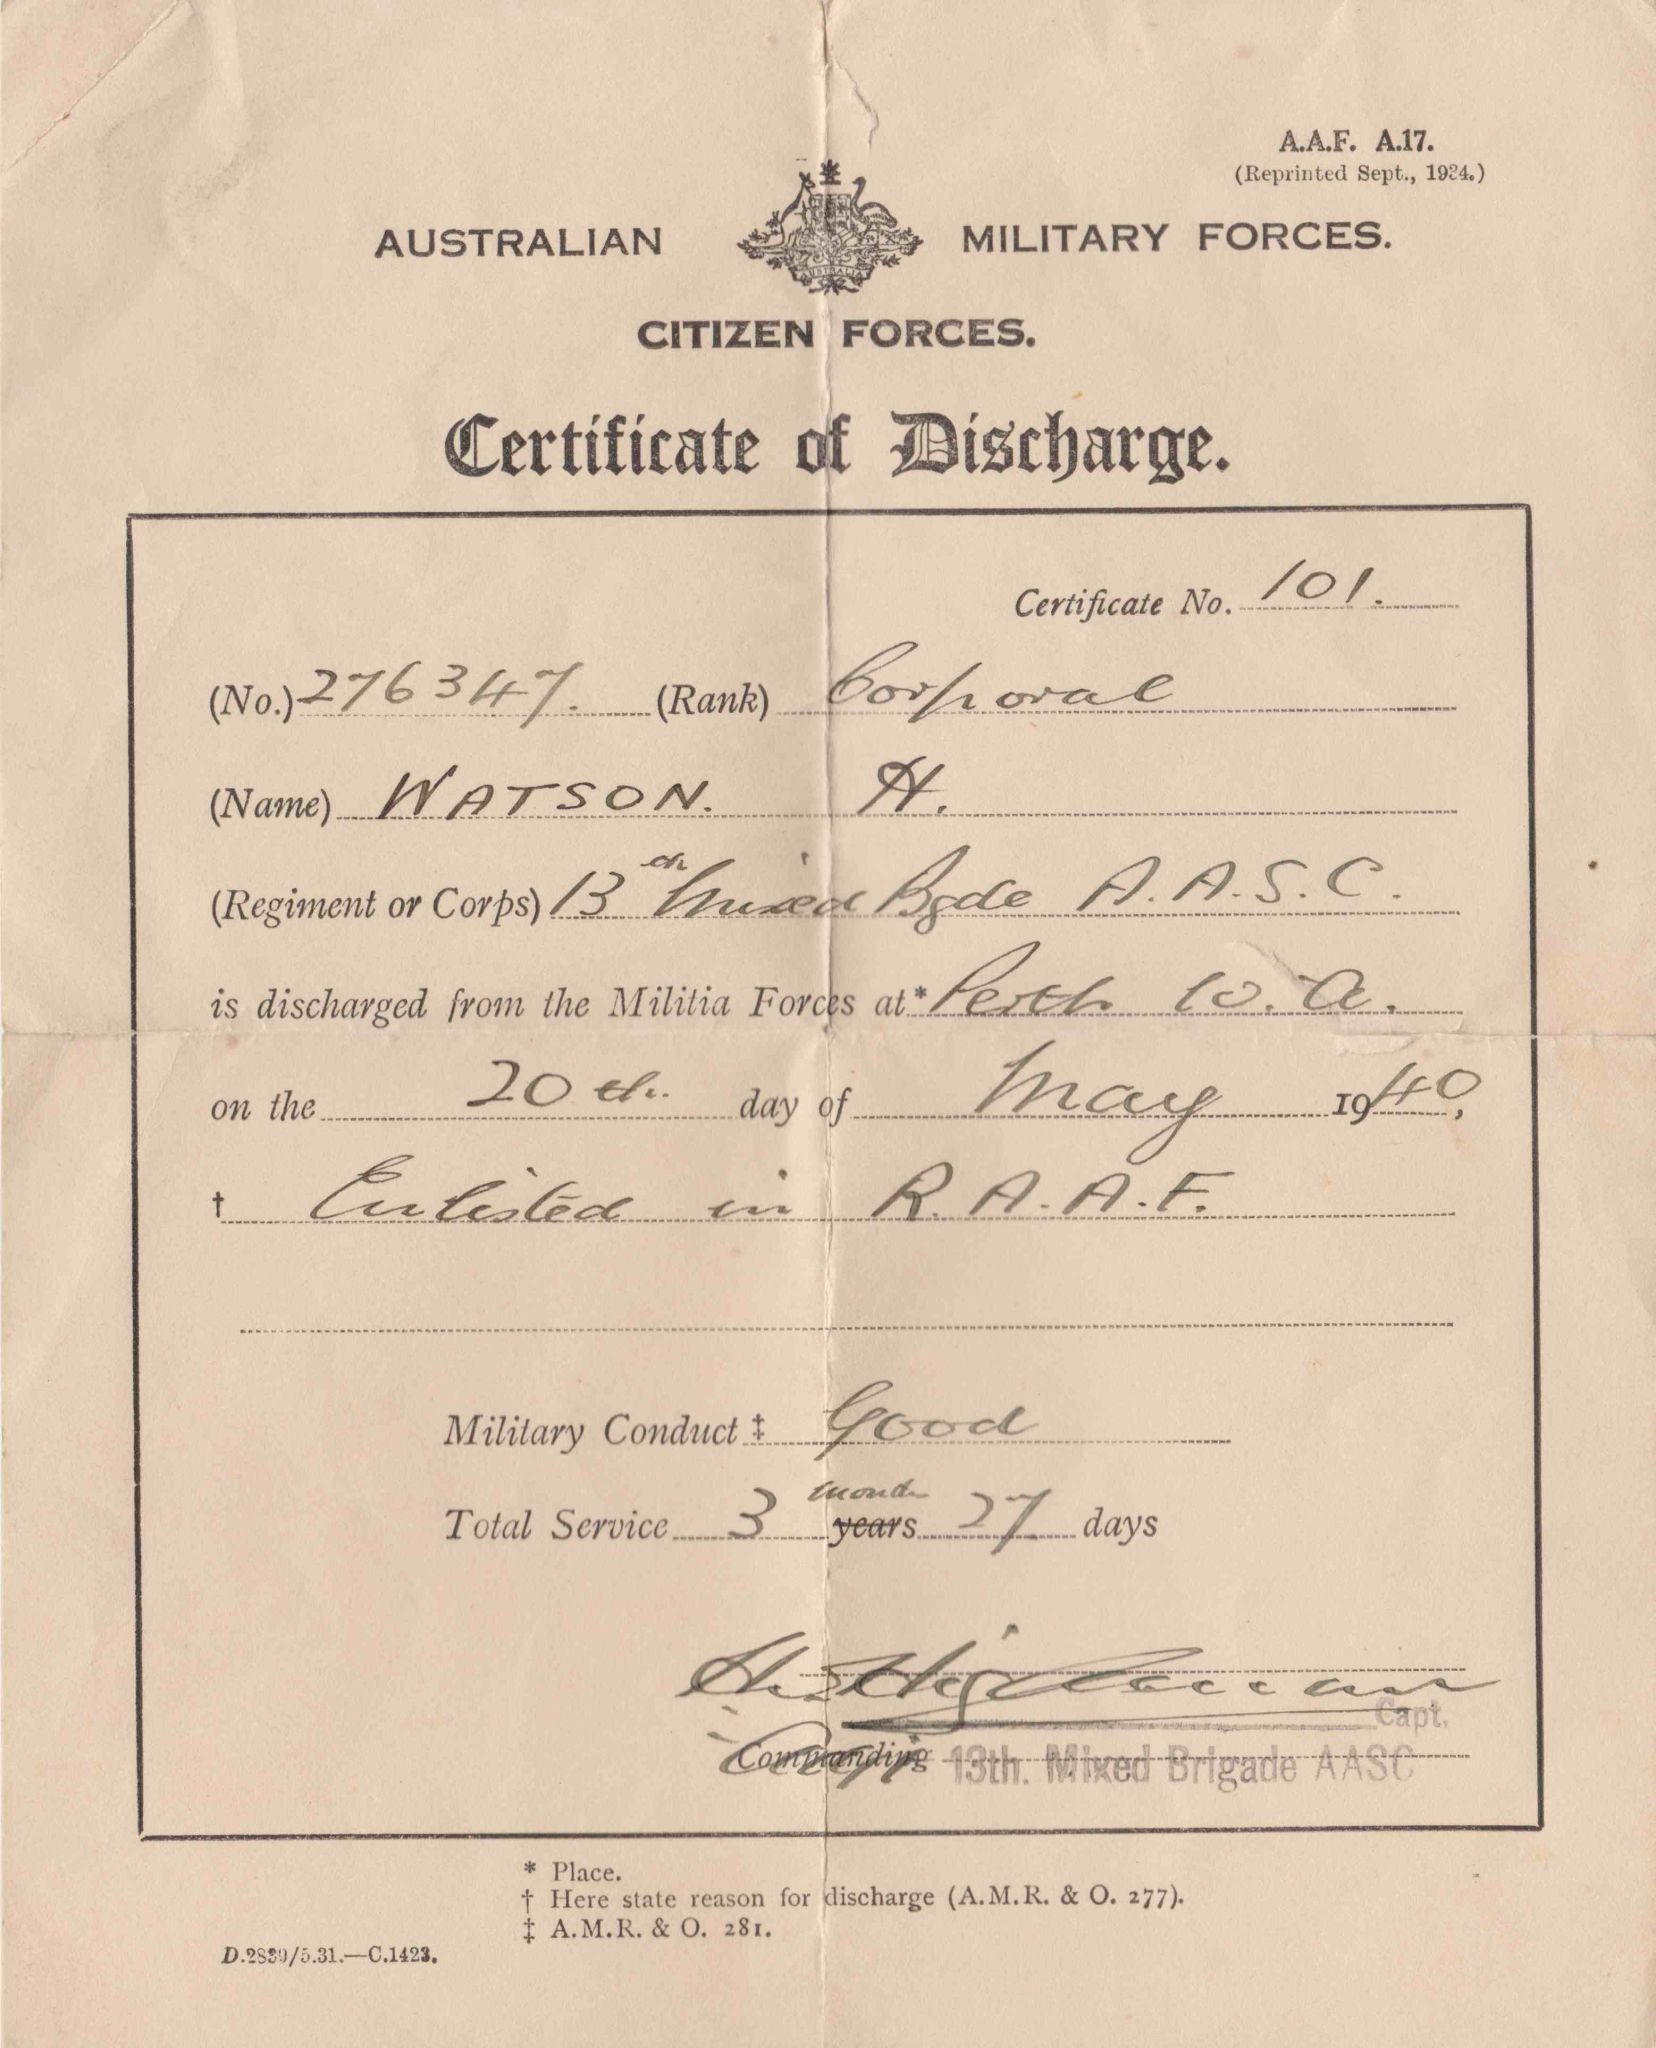 A.A.F. A.17.
(Reprinted Sept., 1924.)
AUSTRALIAN MILITARY FORCES.
AUSTRALIA
CITIZEN FORCES.
Certificate of Discharge.
Certificate No. 101.
(No.) 276347. (Rank) Corporal
(Name) WATSON. H.
(Regiment or Corps) 13th Mixed Bgde A.A.S.C.
is discharged from the Militia Forces at* Perth W.A.
on the 20th. day of May 1940,
† Enlisted in R.A.A.F.
Military Conduct ‡ Good
months
Total Service 3 years 27 days
Capt.
Commanding 13th. Mixed Brigade AASC
* Place.
† Here state reason for discharge (A.M.R. & O. 277).
‡ A.M.R. & O. 281.
D.2839/5.31.—C.1423.